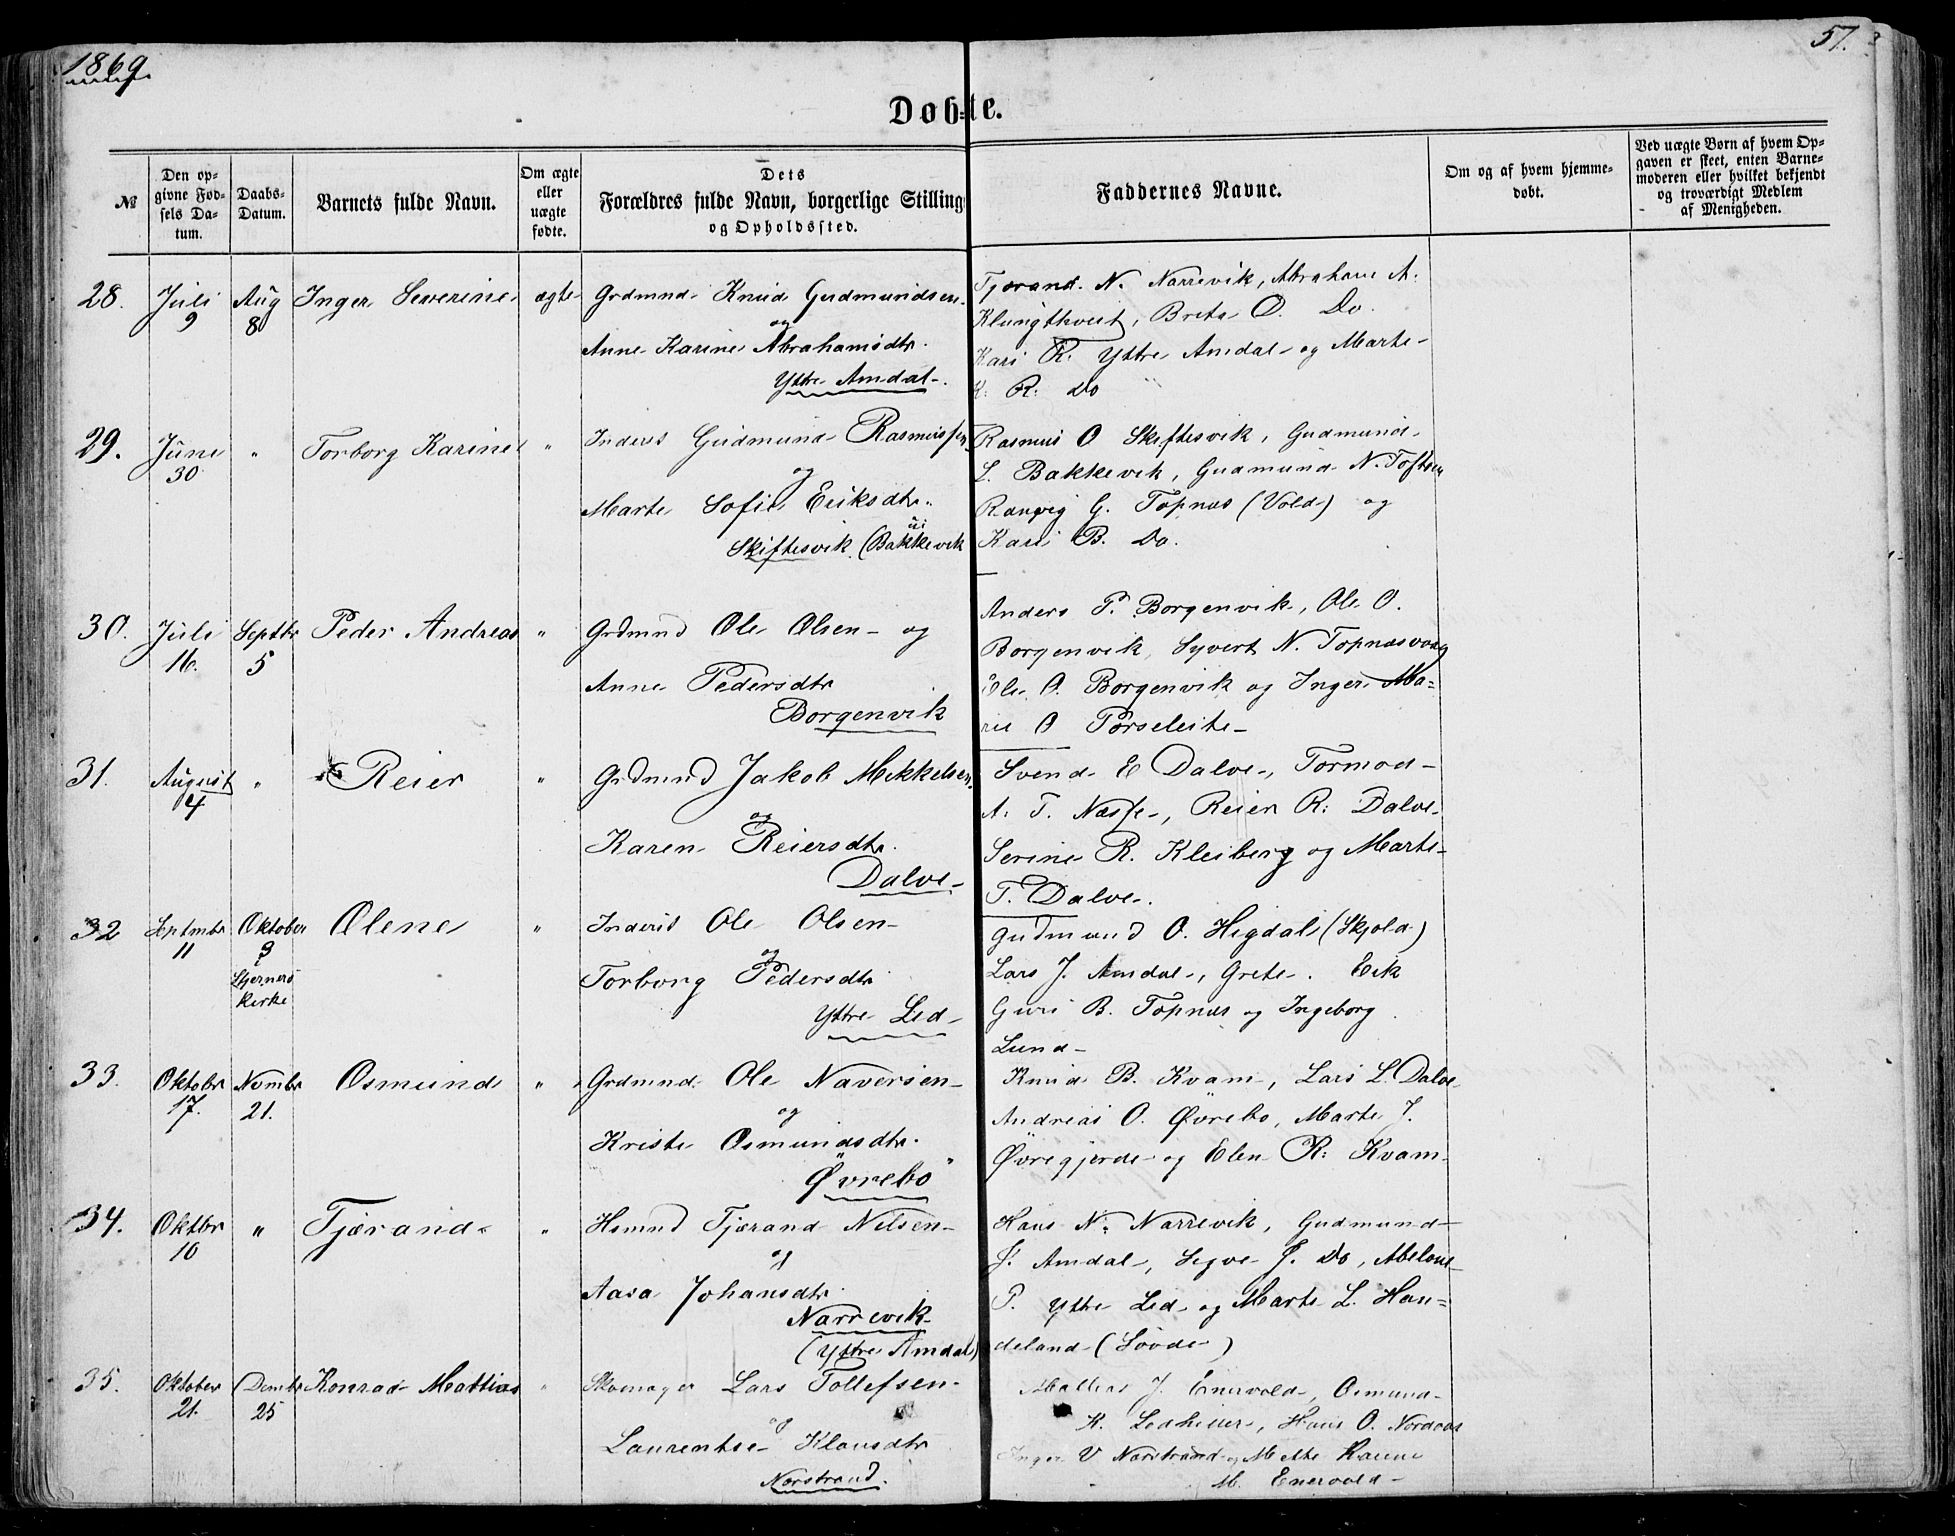 1869
57.
Døbte.
№
Den opgivne Fødsels Datum.
Daabs-Datum.
Barnets fulde Navn.
Om ægte eller uægte fødte.
Dets Forældres fulde Navn, borgerlige Stilling og Opholdssted.
Faddernes Navne.
Om og af hvem hjemmedøbt.
Ved uægte Børn af hvem Opgaven er skeet, enten Barnemoderen eller hvilket bekjendt og troværdigt Medlem af Menigheden.
28. Juli 9 Aug 8 Inger Severine ægte
Grdmnd Knud Gudmundsen
og
Anne Karine Abrahamsdtr.
Yttre Amdal
Tjørand N. Narrevik, Abraham A.
Klungtveit, Brita O. Do.
Kari R. Yttre Amdal og Marte
K. R. Do
29. Juni 30 " Torborg Karine "
Inderst Gudmund Rasmussen
og
Marte Sofie Eriksdtr.
Skiftesvik (Bakkevik
Rasmus O Skiftesvik, Gudmund
L. Bakkevik, Gudmund N. Toften
Rangvig G. Topnæs (Vold) og
Kari B. Do.
30. Juli 16. Septbr 5 Peder Andreas "
Grdmnd Ole Olsen og
Anne Pedersdtr
Borgenvik
Anders P. Borgenvik, Ole O.
Borgenvik, Syvert N. Topnæsvaag
O. Borgenvik og Inger Ma-
rie O Torseleite
31. August 4 " Reier "
Grdmnd Jakob Mikkelsen
og
Karen Reiersdtr.
Dalve
Svend E Dalve, Tormod
A. T. Næsse, Reier R. Dalve
Serine R. Kleiberg og Marte
T. Dalve.
32 Septmbr 11 Oktober 3 i Skjernerø Kirke Olene "
Inderst Ole Olsen
og
Torborg Pedersdtr
Yttre Lid
Gudmund O. Higdal (Skjold)
Lars J. Amdal, Grete Eik
Guri B. Topnæs og Ingeborg
Lund
33. Oktobr 17. Novmbr 21. Osmund "
Grdmnd Ole Naversen
og
Kriste Osmundsdtr.
Øvrebø
Knud B. Kvam, Lars L. Dalve
Andreas O. Øvrebø, Marte J.
Øvregjerde og Elen R. Kvam
34. Oktbr 10 " Tjærand "
Hsmnd Tjærand Nilsen
og
Aasa Johansdtr.
Narrevik
(Yttre Amdal)
Hans N. Narrevik, Gudmund
J. Amdal, Sigve J. Do, Abelone
P. Yttre Lid og Marte L. Han-
deland (Søvde)
35. Oktober 21. Decmbr 25 Konrad Mattias "
Skomager Lars Tollefsen
og
Laurentse Klausdtr
Nørstrand.
J. Enervold, Osmund
K. Hans O. Nordaas
Inger V Nørstrand og Mette Karine
M. Enervold